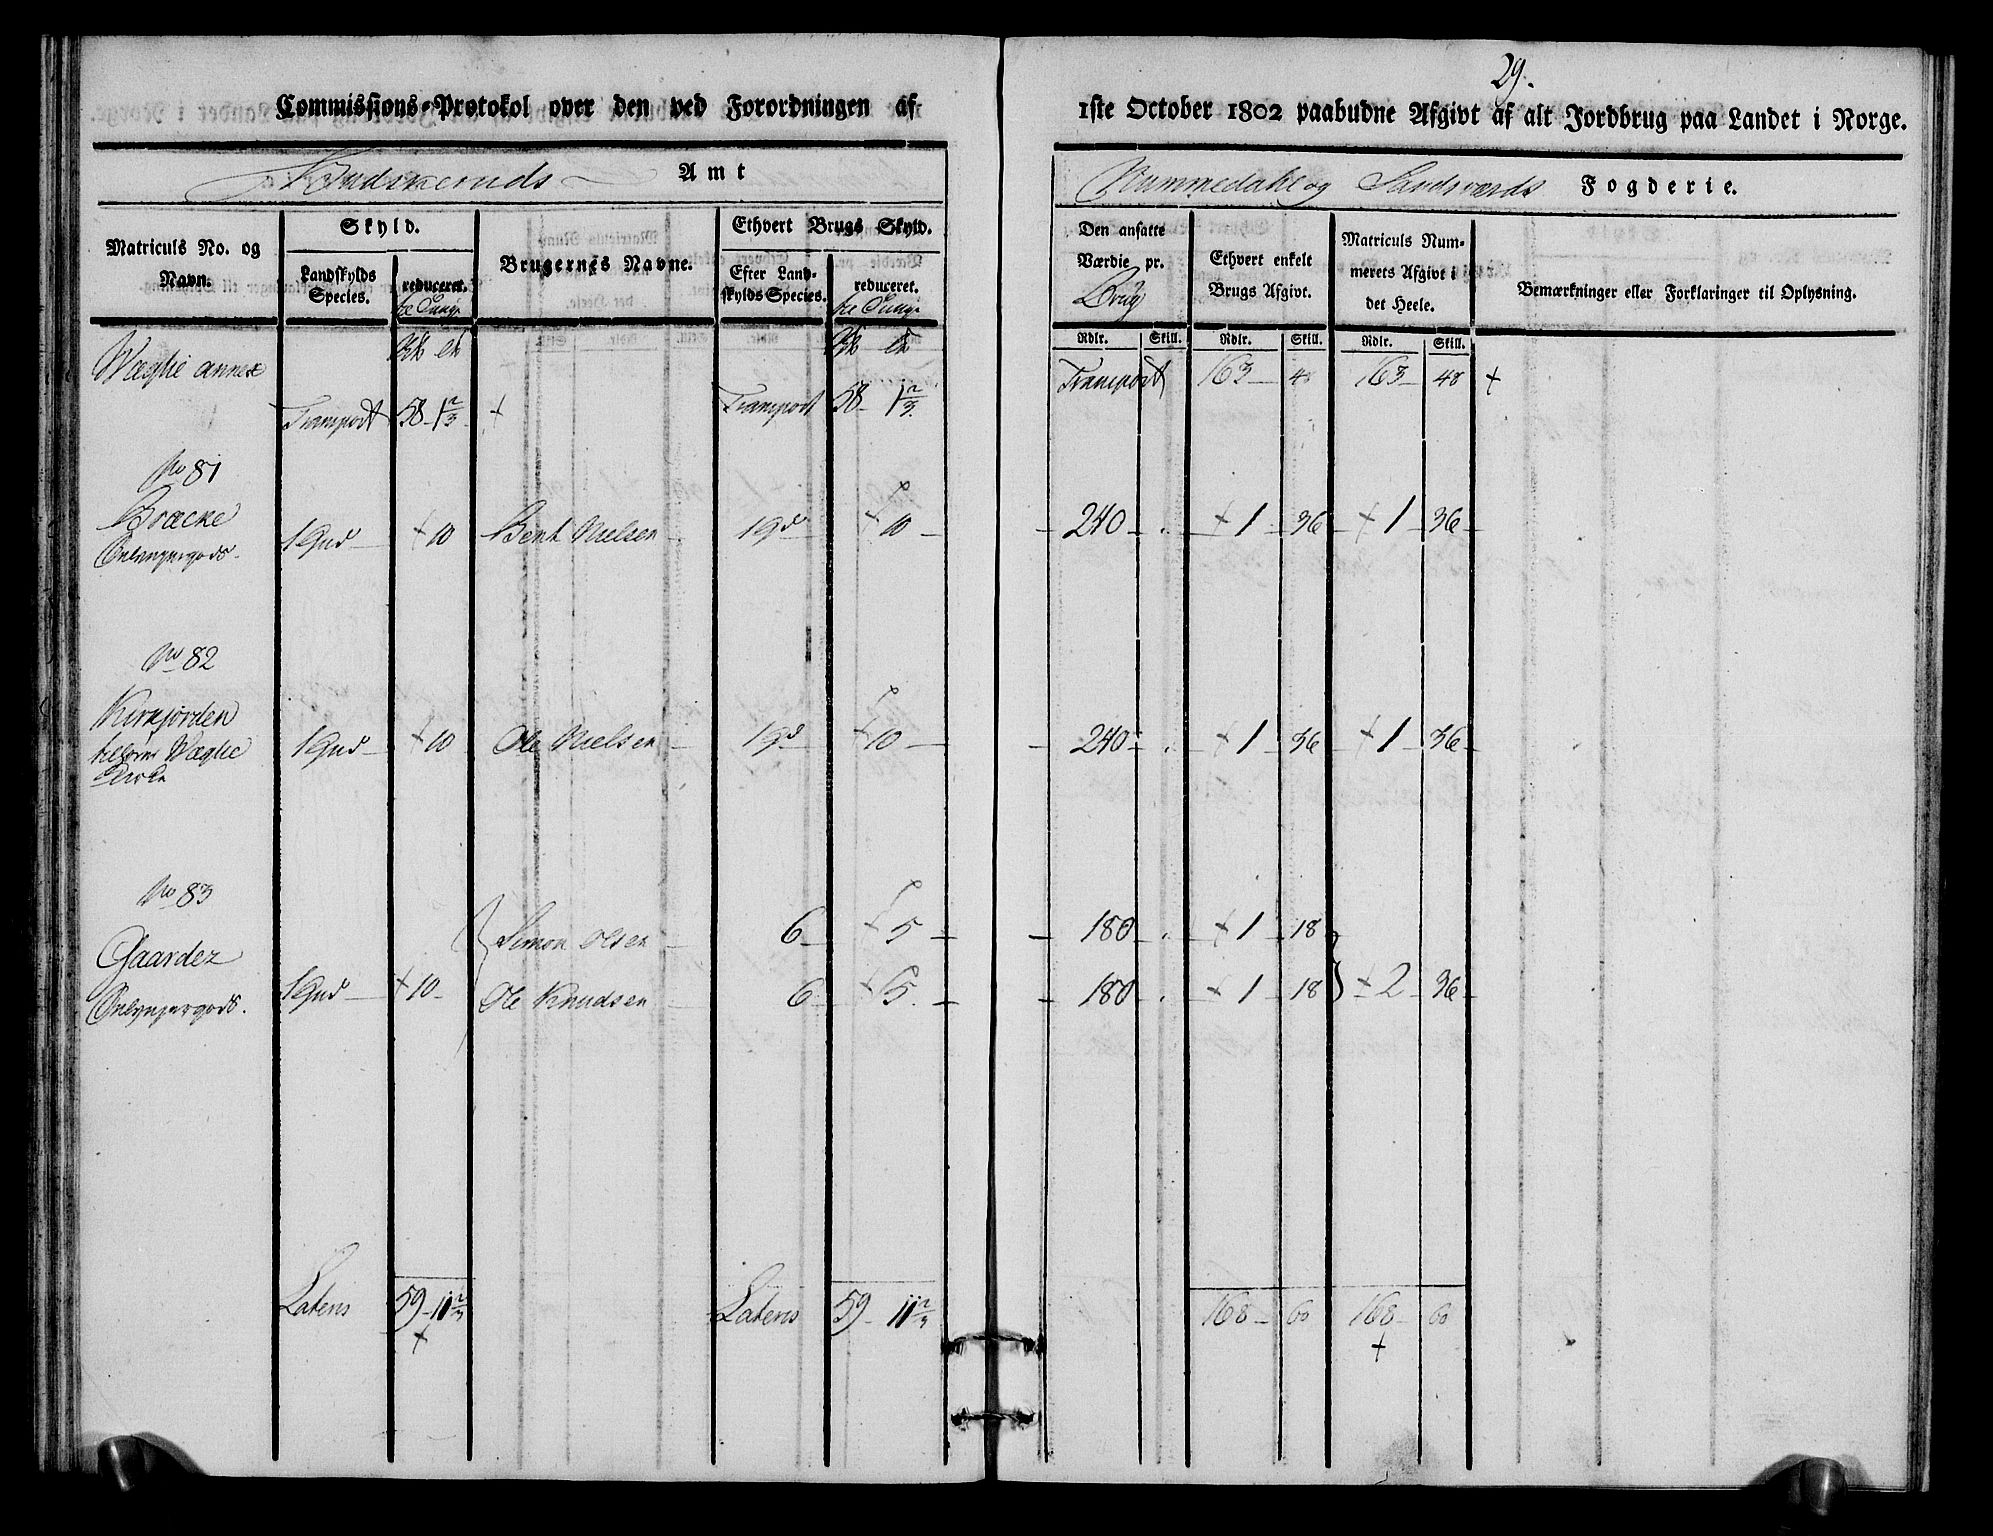 29.
Commissions-Protokol over den ved Forordningen af 1ste October 1802 paabudne Afgivt af alt Jordbrug paa Landet i Norge.
Budskeruds Amt
Nummedahl og Sandsværds Fogderie.
Matriculs No. og Navn.
Skyld.
Landskylds Species.
reduceret.
Brugernes Navne.
Ethvert Brugs Skyld.
Efter Landskylds Species.
reduceret.
Den ansatte Værdie pr. Brug
Ethvert enkelt Brugs Afgivt.
Matriculs Nummerets Afgivt i det Heele.
Bemærkninger eller Forklaringer til Oplysning.
Rdlr. Skill. Rdlr. Skill. Rdlr. Skill.
Wæglie annex
Transport 58 - 1 2/3 + Transport 58 - 1 2/3 Transport 163 - 48 163 - 48 +
No 81
Bræcke 1 Hud + 10 Bent Nielsen 1 + 10 240 - + 1 - 36 + 1 - 36
No 82
Kirkjorden
tilhører Wæglie 1 Hud + 10 Ole Nielsen 1 + 10 240 - + 1 - 36 + 1 - 36
Kirke
No 83
Simon Olsen 6 + 5 180 - + 1 - 18
Gaarder
1 Hud + 10 Ole Knudsen 6 + 5 180 - + 1 - 18 + 2 - 36
Latens 59 - 11 2/3 Latens 59 - 11 2/3 168 - 60 168 - 60
+ +